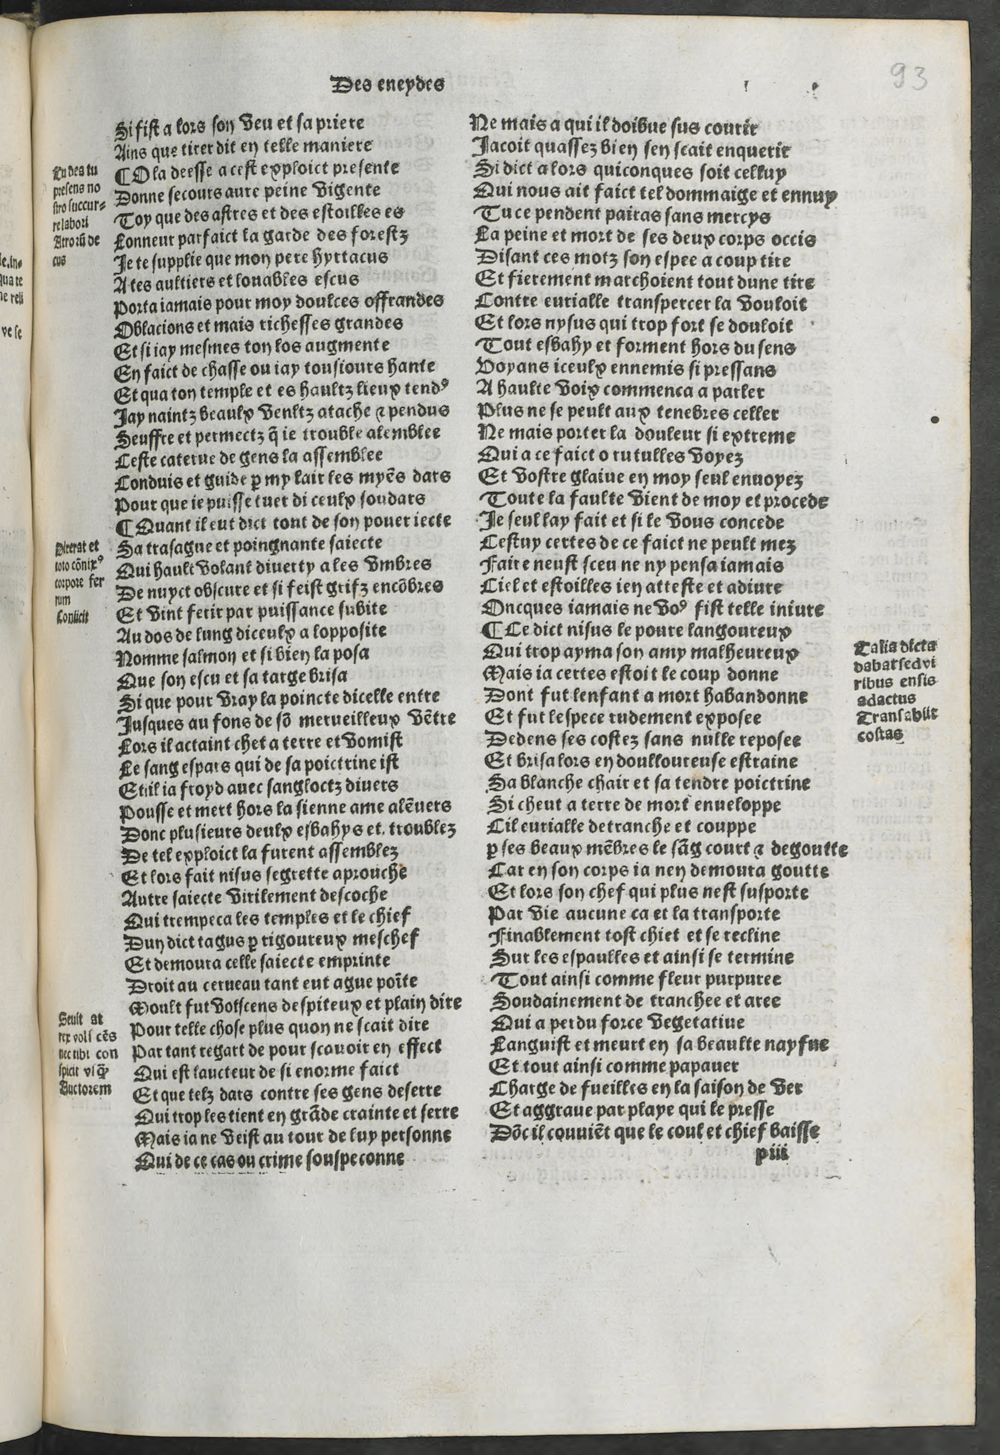 Des eneydes
93
Si fist a lors son veu et sa priere
Ains que tirer dit en telle maniere
¶ O la deesse a cest exploict presente
Donne secours a ure peine vigente
Toy que des astres et des estoilles es
Lonneur parfaict la garde des forestz
Je te supplie que mon pere hyrtacus
A tes aultiers et louables escus
Porta iamais pour moy doulces offrandes
Oblacions et mais richesses grandes
Et si iay mesmes ton los augmente
En faict de chasse ou iay tousiours hante
Et qua ton temple et es haultz lieux tendꝰ
Jay naintz beaulx venltz atache ⁊ pendus
Seuffre et permectz q̃ ie trouble alemblee
Ceste caterue de gens la assemblee
Conduis et guide ꝑ my lair les myẽs dars
Pour que ie puisse tuer di ceulx soudars
¶ Quant il eut dict tont de son pouer iecte
Sa trasagne et poingnante saiecte
Qui hault volant diuerty a les vmbres
De nuyct obscure et si feist grifz encõbres
Et vint ferir par puissance subite
Au dos de lung diceulx a lopposite
Nomme salmon et si bien la posa
Que son escu et sa targe brisa
Si que pour vray la poincte dicelle entre
Jusques au fons de sõ merueilleux vẽtre
Lors il actaint chet a terre et vomist
Le sang espais qui de sa poictrine ist
Et il ia froyd auec sangloctz diuers
Pousse et mert hors la sienne ame alẽuers
Donc plusieurs deulx esbahys et. troublez
De tel exploict la furent assemblez
Et lors fait nisus segrette aprouche
Autre saiecte virilement descoche
Qui trempeca les temples et le chief
Dun dict tagus ꝑ rigoureux meschef
Et demoura celle saiecte emprinte
Droit au cerueau tant eut ague poĩte
Moult fut volscens despiteux et plain dire
Pour telle chose plus quon ne scait dire
Par tant regart de pour scauoir en effect
Qui est laucteur de si enorme faict
Et que telz dars contre ses gens deserre
Qui trop les tient en grãde crainte et serre
Mais ia ne veist au tour de luy personne
Qui de ce cas ou crime souspeconne
Tu dea tu
presens no
stro succur-
re labori
Atrorũ de
cus
Dixerat et
toto cõnixꝰ
corpore fer
rum
Conlicit
Seuit at
rox vols cẽs
nec ubi con
spicit vl q̃
Auctorem
Ne mais a qui il doibue sus courir
Jacoit quassez bien sen scait enquerir
Si dict a lors quiconques soit celluy
Qui nous ait faict tel dommaige et ennuy
Tu ce pendent pairas sans mercys
La peine et mort de ses deux corps occis
Disant ces motz son espee a coup tire
Et fierement marchoient tout dune tire
Contre eurialle transpercer la vouloit
Et lors nysus qui trop fort se douloit
Tout esbahy et forment hors du sens
Voyans iceulx ennemis si pressans
A haulte voix commenca a parler
Plus ne se peult aux tenebres celler
Ne mais porter la douleur si extreme
Qui a ce faict o rutulles voyez
Et vostre glaiue en moy seul enuoyez
Toute la faulte vient de moy et procede
Je seul lay fait et si le vous concede
Cestuy certes de ce faict ne peult mez
Faire neust sceu ne ny pensa iamais
Ciel et estoilles ien atteste et adiure
Oncques iamais ne voꝰ fist telle iniure
¶ Ce dict nisus le poure langoureux
Qui trop ayma son amy malheureux
Mais ia certes estoit le coup donne
Dont fut lenfant a mort habandonne
Et fut lespece rudement exposee
Dedens ses costez sans nulle reposee
Et brisa lors en doulloureuse estraine
Sa blanche chair et sa tendre poictrine
Si cheut a terre de mort enueloppe
Cil eurialle detranche et couppe
ꝑ ses beaux mẽbres le sãg court ⁊ degoutte
Car en son corps ia nen demoura goutte
Et lors son chef qui plus nest susporte
Par vie aucune ca et la transporte
Finablement tost chiet et se recline
Sur les espaulles et ainsi se termine
Tout ainsi comme fleur purpuree
Soudainement de tranchee et aree
Qui a perdu force vegetatiue
Languist et meurt en sa beaulte nayfue
Et tout ainsi comme papauer
Charge de fueilles en la saison de ver
Et aggraue par playe qui le presse
Dõc il conuiẽt que le coul et chief baisse
p iii
Talia dicta
dabat sed vi
ribus ensis
adactus
Transabiit
costas